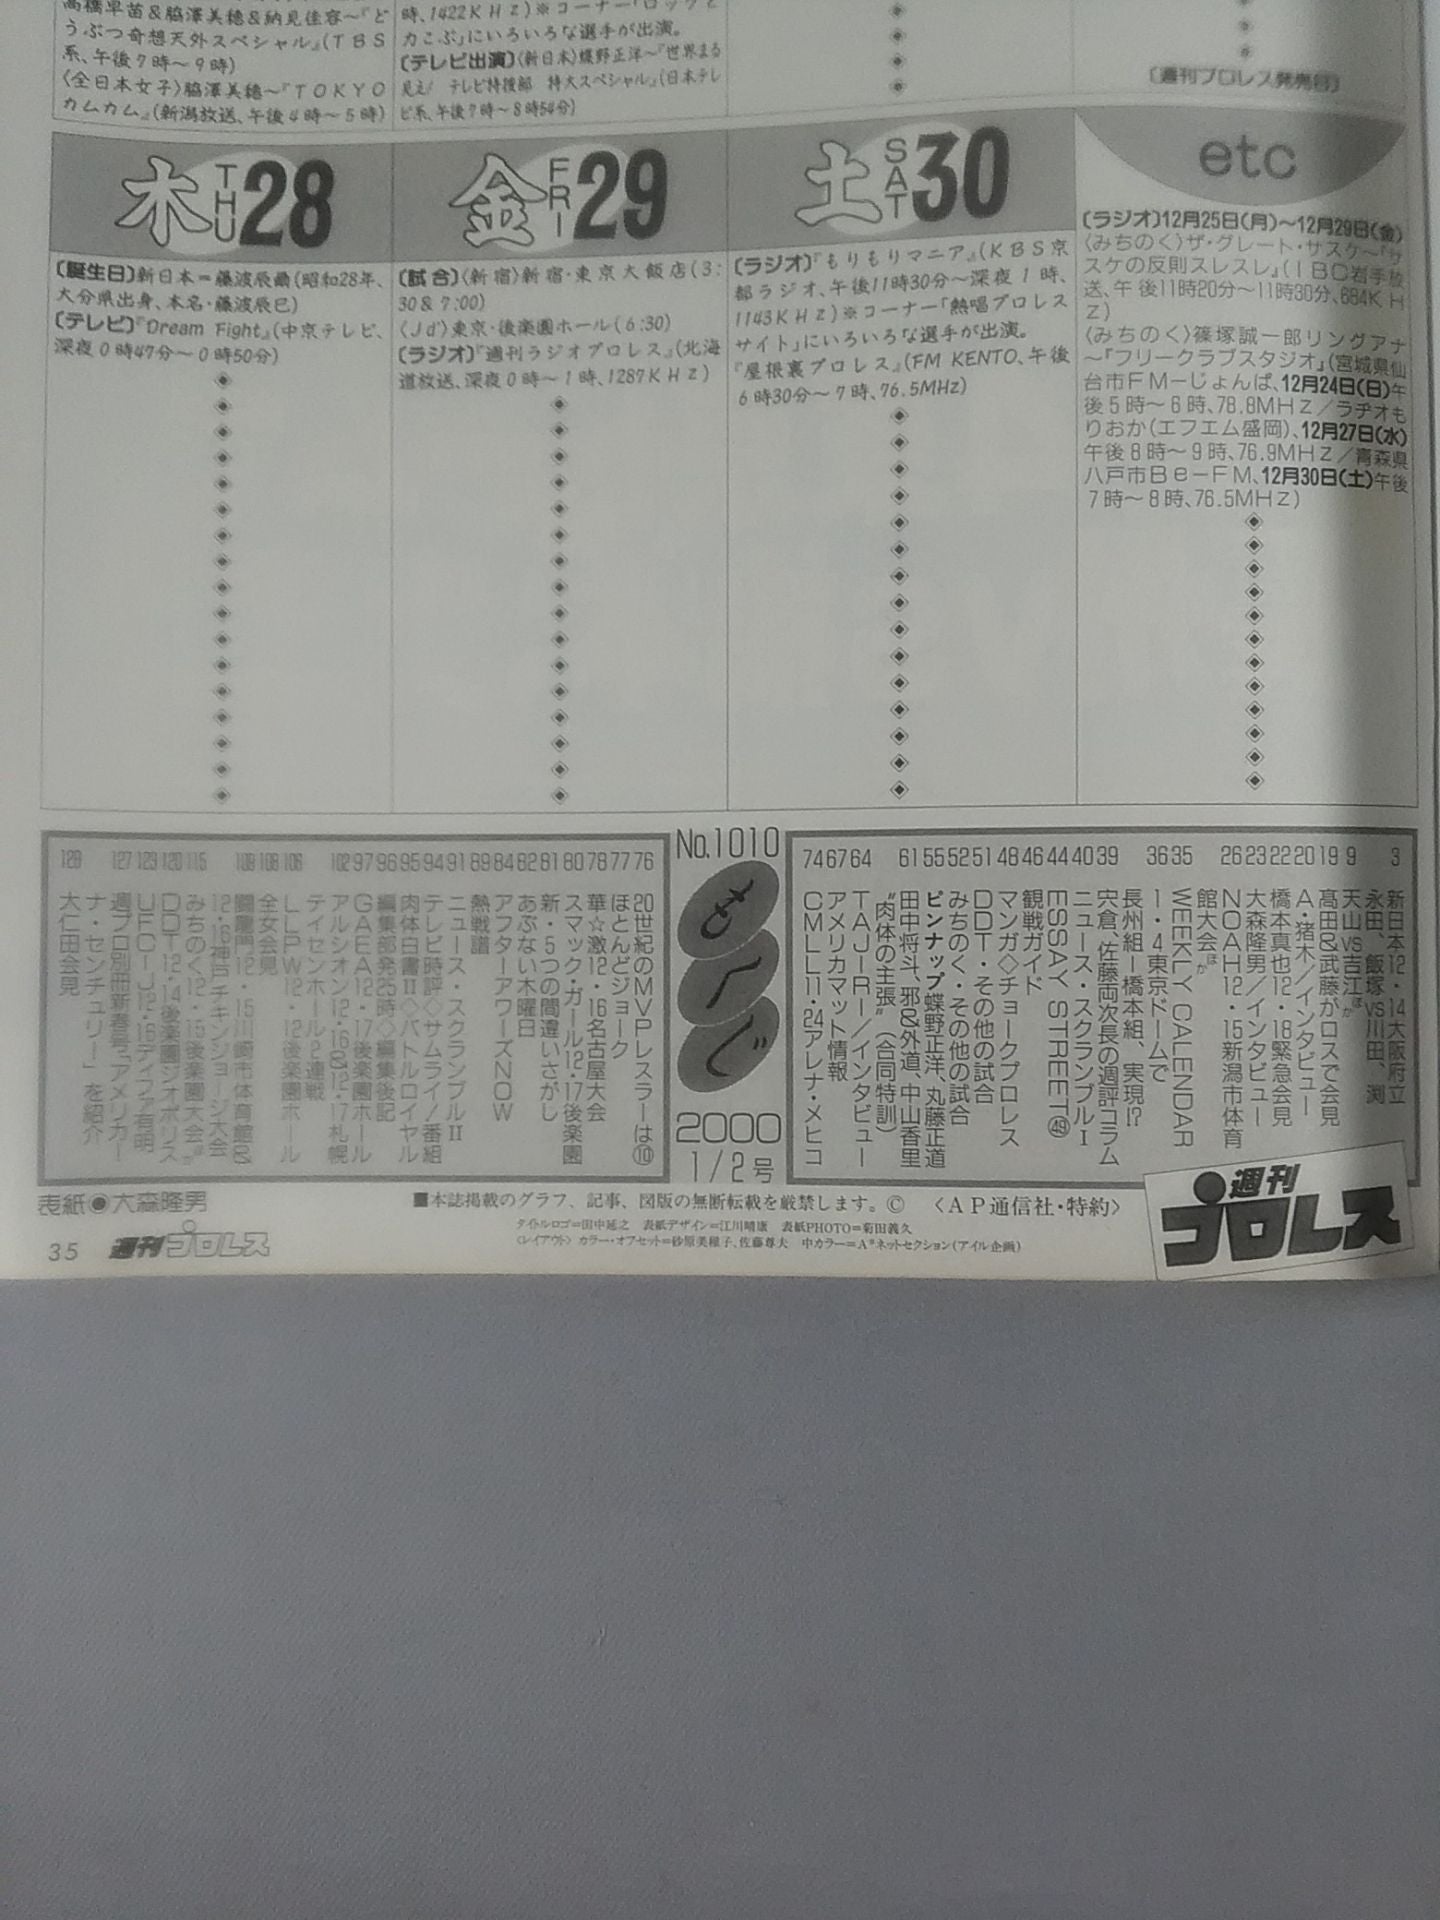 高橋早苗&脇澤美穂&納見佳容～『ど
うぶつ奇想天外スペシャル』(TBS
系、午後7時～9時)
〈全日本女子〉脇澤美穂～『TOKYO
カムカム』(新潟放送、午後4時～5時)
時、1422KHz)※コーナー「ロックと
力こぶ」にいろいろな選手が出演。
〔テレビ出演〕〈新日本〉蝶野正洋～『世界まる
見え! テレビ特捜部 特大スペシャル』(日本テレ
ビ系、午後7時～8時54分)
〔週刊プロレス発売日〕
木 THU 28
〔誕生日〕新日本=藤波辰爾(昭和28年、
大分県出身、本名・藤波辰巳)
〔テレビ〕『Dream Fight』(中京テレビ、
深夜0時47分～0時50分)
金 FRI 29
〔試合〕〈新宿〉新宿・東京大飯店(3:
30&7:00)
〈Jd'〉東京・後楽園ホール(6:30)
〔ラジオ〕『週刊ラジオプロレス』(北海
道放送、深夜0時～1時、1287KHz)
土 SAT 30
〔ラジオ〕『もりもりマニア』(KBS京
都ラジオ、午後11時30分～深夜1時、
1143KHz)※コーナー「熱唱プロレス
サイト」にいろいろな選手が出演。
『屋根裏プロレス』(FM KENTO、午後
6時30分～7時、76.5MHz)
etc
〔ラジオ〕12月25日(月)～12月29日(金)
〈みちのく〉ザ・グレート・サスケ～『サ
スケの反則スレスレ』(IBC岩手放
送、午後11時20分～11時30分、684KH
z)
〈みちのく〉篠塚誠一郎リングアナ
～『フリークラブスタジオ』(宮城県仙
台市FMーじょんぱ、12月24日(日)午
後5時～6時、78.8MHz/ラヂオも
りおか(エフエム盛岡)、12月27日(水)
午後8時～9時、76.9MHz/青森県
八戸市BeーFM、12月30日(土)午後
7時～8時、76.5MHz)
3 新日本12・14大阪府立
永田、飯塚vs川田、渕
9 天山vs吉江ほか
19 髙田&武藤がロスで会見
20 A・猪木/インタビュー
22 橋本真也12・18緊急会見
23 大森隆男/インタビュー
26 NOAH12・15新潟市体育
館大会ほか
35 WEEKLY CALENDAR
36 1・4東京ドームで
長州組ー橋本組、実現!?
39 宍倉、佐藤両次長の週評コラム
40 ニュース・スクランブルⅠ
44 ESSAY STREET㊾
46 観戦ガイド
48 マンガ◇チョークプロレス
51 DDT・その他の試合
52 みちのく・その他の試合
55 ピンナップ蝶野正洋、丸藤正道
61 田中将斗、邪&外道、中山香里
“肉体の主張”(合同特訓)
64 TAJIRI/インタビュー
67 アメリカマット情報
74 CMLL11・24アレナ・メヒコ
No.1010
もくじ
2000
1/2号
76 20世紀のMVPレスラーは⑩
77 ほとんどジョーク
78 華☆激12・16名古屋大会
80 スマック・ガール12・17後楽園
81 新・5つの間違いさがし
82 あぶない木曜日
84 アフターアワーズNOW
89 熱戦譜
91 ニュース・スクランブルⅡ
94 テレビ時評◇サムライ!番組
95 肉体白書Ⅱ◇バトルロイヤル
96 編集部発25時◇編集後記
97 GAEA12・17後楽園ホール
102 アルシオン12・16&12・17札幌
テイセンホール2連戦
106 LLPW12・12後楽園ホール
108 全女会見
109 闘龍門12・15川崎市体育館&
12・16神戸チキンジョージ大会
115 みちのく12・15後楽園大会ほか
120 DDT12・14後楽園ジオポリス
129 UFC-J12・16ディファ有明
127 週プロ別冊新春号「アメリカー
ナ・センチュリー」を紹介
128 大仁田会見
表紙●大森隆男
■本誌掲載のグラフ、記事、図版の無断転載を厳禁します。© 〈AP通信社・特約〉
タイトルロゴ=田中延之 表紙デザイン=江川晴康 表紙PHOTO=菊田義久
〈レイアウト〉カラー・オフセット=砂原美穂子、佐藤尊夫 中カラー=A*ネットセクション(アイル企画)
週刊プロレス
35 週刊プロレス